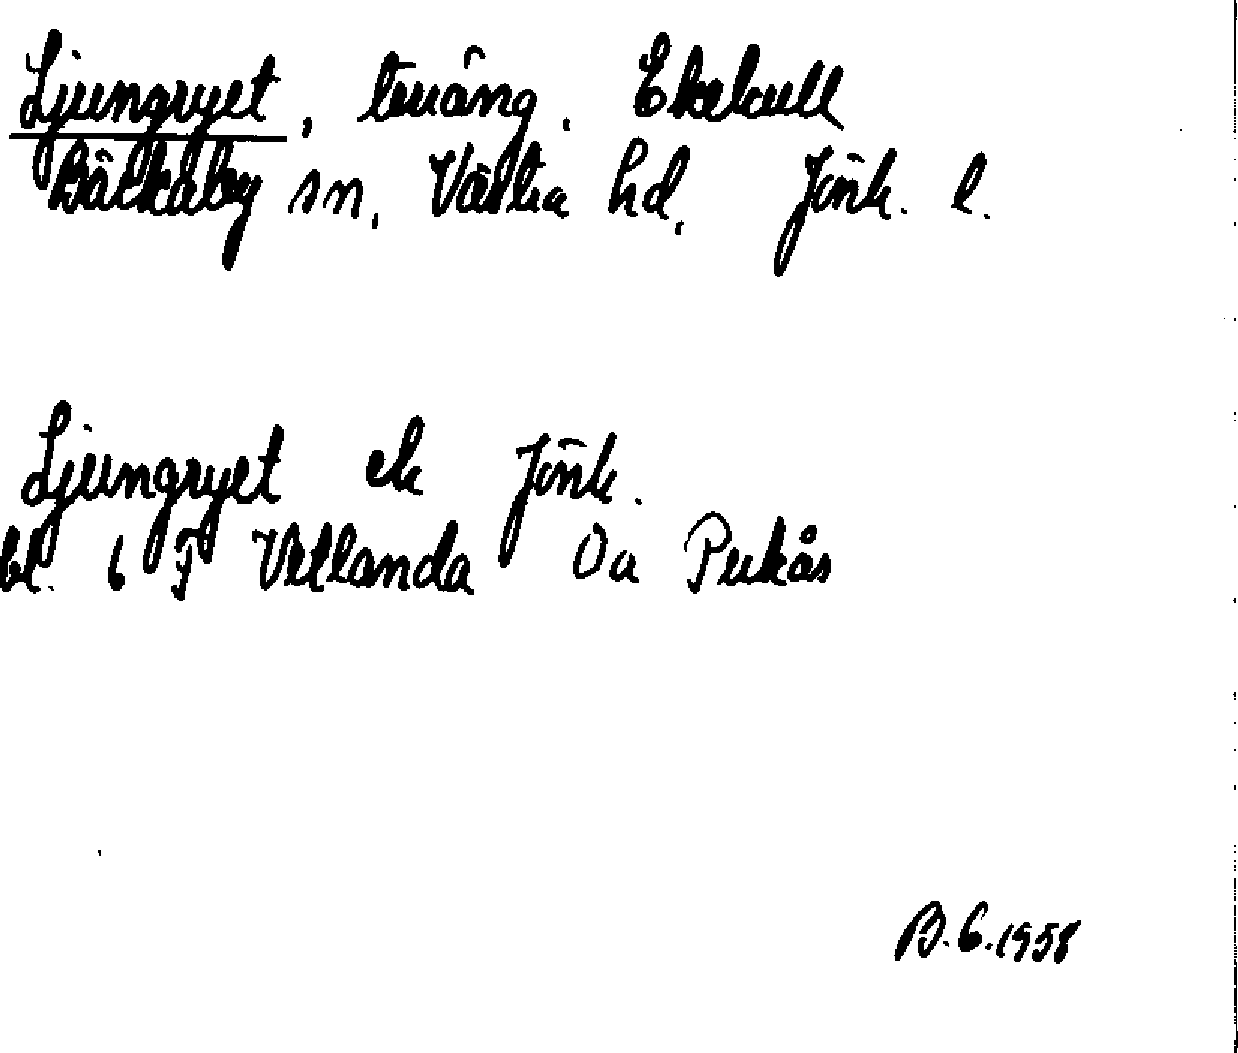 Ljungryet, terräng. Ekekull
Bäckaby sn, Västra hd, Jönk. l.
Ljungryet ek Jönk.
bl. 6 F Vetlanda Va Pukås
B.G.1958